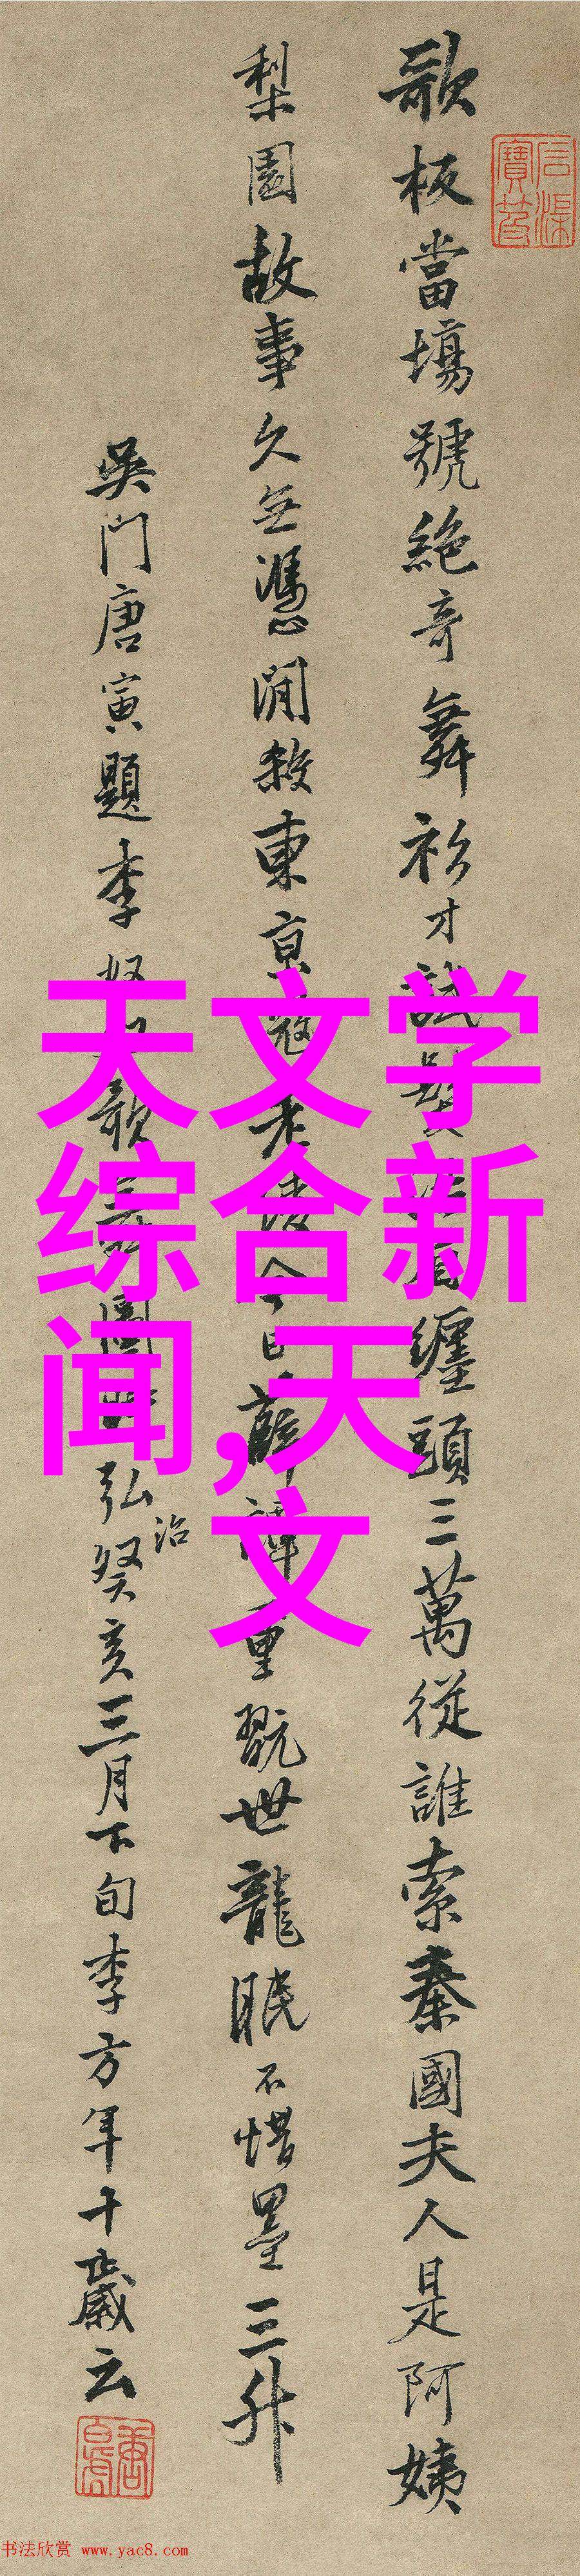 歌板當場號絕奇舞衫才試
纏頭三萬從誰索秦國夫人是阿姨
梨園故事久無憑閒殺東京
老
今日薛譚重翫世龍眠不惜墨三升
吳門唐寅題李奴奴歌舞圖時弘治癸亥三月下旬李方年十歲云
天文学
综合新
闻,天
文
书法欣赏 www.yac8.com